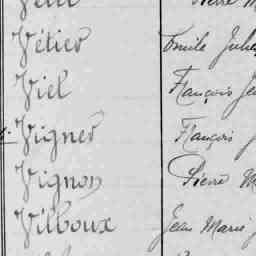 Vétier Emile Jules
Viel François Je
Vigner François J
Vignon Pierre M
Vilboux Jean Marie J